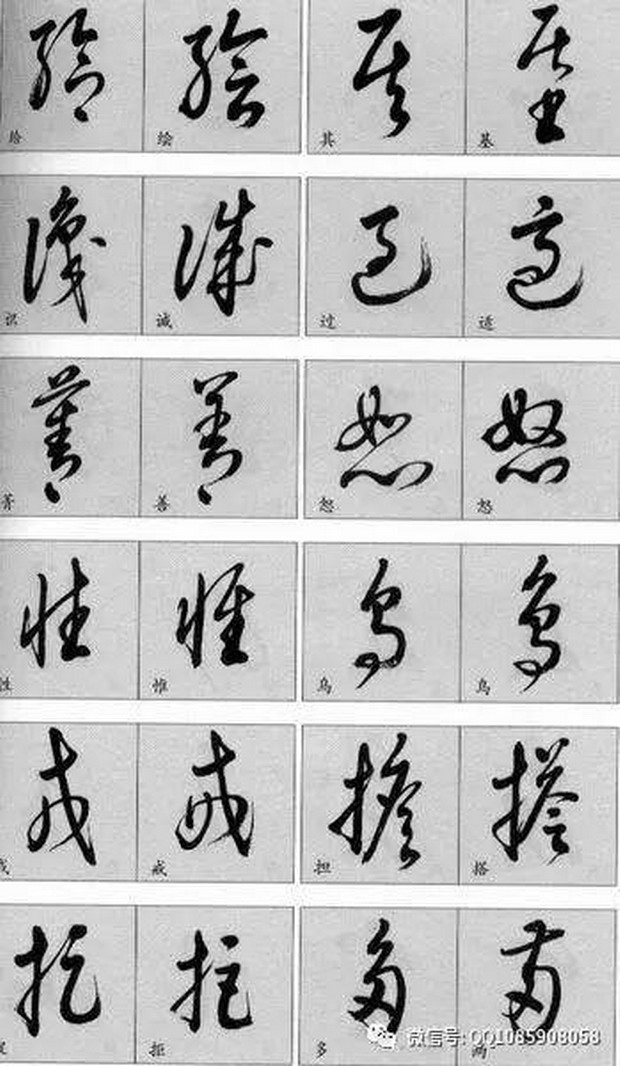 给 绘 其 基
识 诚 过 适
菁 善 恕 怒
性 惟 乌
戒 担 搭
拒 多 两
微信号: QQ1085908058